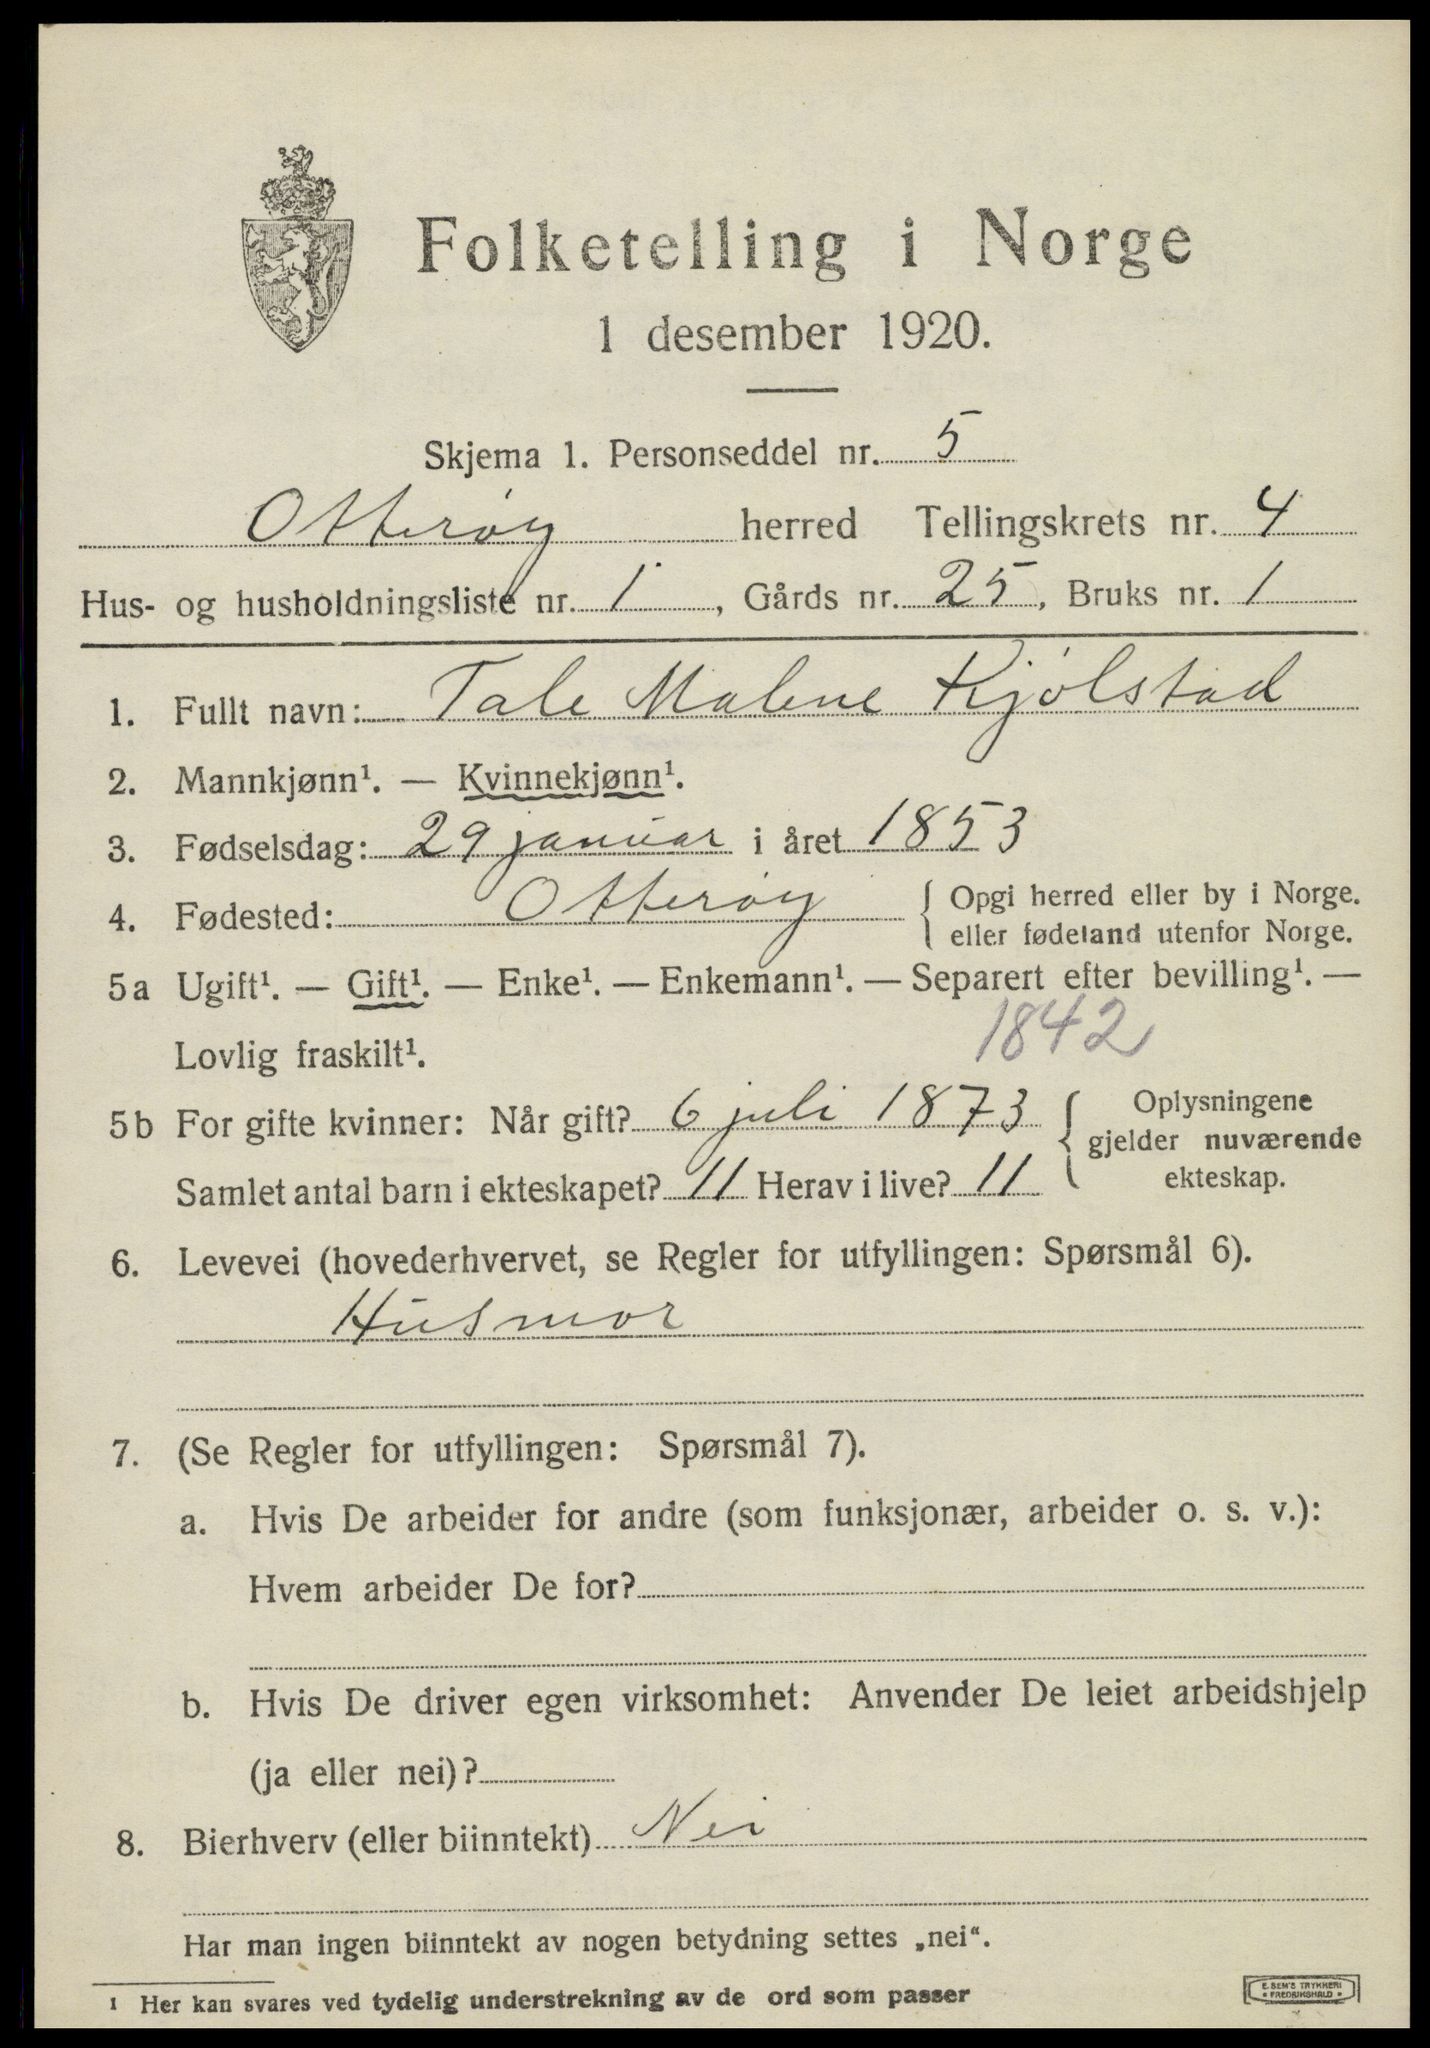 Folketelling i Norge
1 desember 1920.
Skjema 1. Personseddel nr. 5
Otterøy herred Tellingskrets nr. 4
Hus- og husholdningsliste nr. 1, Gårds nr. 25, Bruks nr. 1
1. Fullt navn: Tale Malene Kjølstad
2. Mannkjønn¹. — Kvinnekjønn¹.
3. Fødselsdag: 29 januar i året 1853
4. Fødested: Otterøy { Opgi herred eller by i Norge.
eller fødeland utenfor Norge.
5a Ugift¹. — Gift¹. — Enke¹. — Enkemann¹. — Separert efter bevilling¹. —
Lovlig fraskilt¹. 1842
5b For gifte kvinner: Når gift? 6 juli 1873 { Oplysningene
gjelder nuværende
Samlet antal barn i ekteskapet? 11 Herav i live? 11 ekteskap.
6. Levevei (hovederhvervet, se Regler for utfyllingen: Spørsmål 6).
Husmor
7. (Se Regler for utfyllingen: Spørsmål 7).
a. Hvis De arbeider for andre (som funksjonær, arbeider o. s. v.):
Hvem arbeider De for?
b. Hvis De driver egen virksomhet: Anvender De leiet arbeidshjelp
(ja eller nei)?
8. Bierhverv (eller biinntekt) Nei
Har man ingen biinntekt av nogen betydning settes „nei“.
¹ Her kan svares ved tydelig understrekning av de ord som passer
E. SEM'S TRYKKERI
• FREDRIKSHALD •